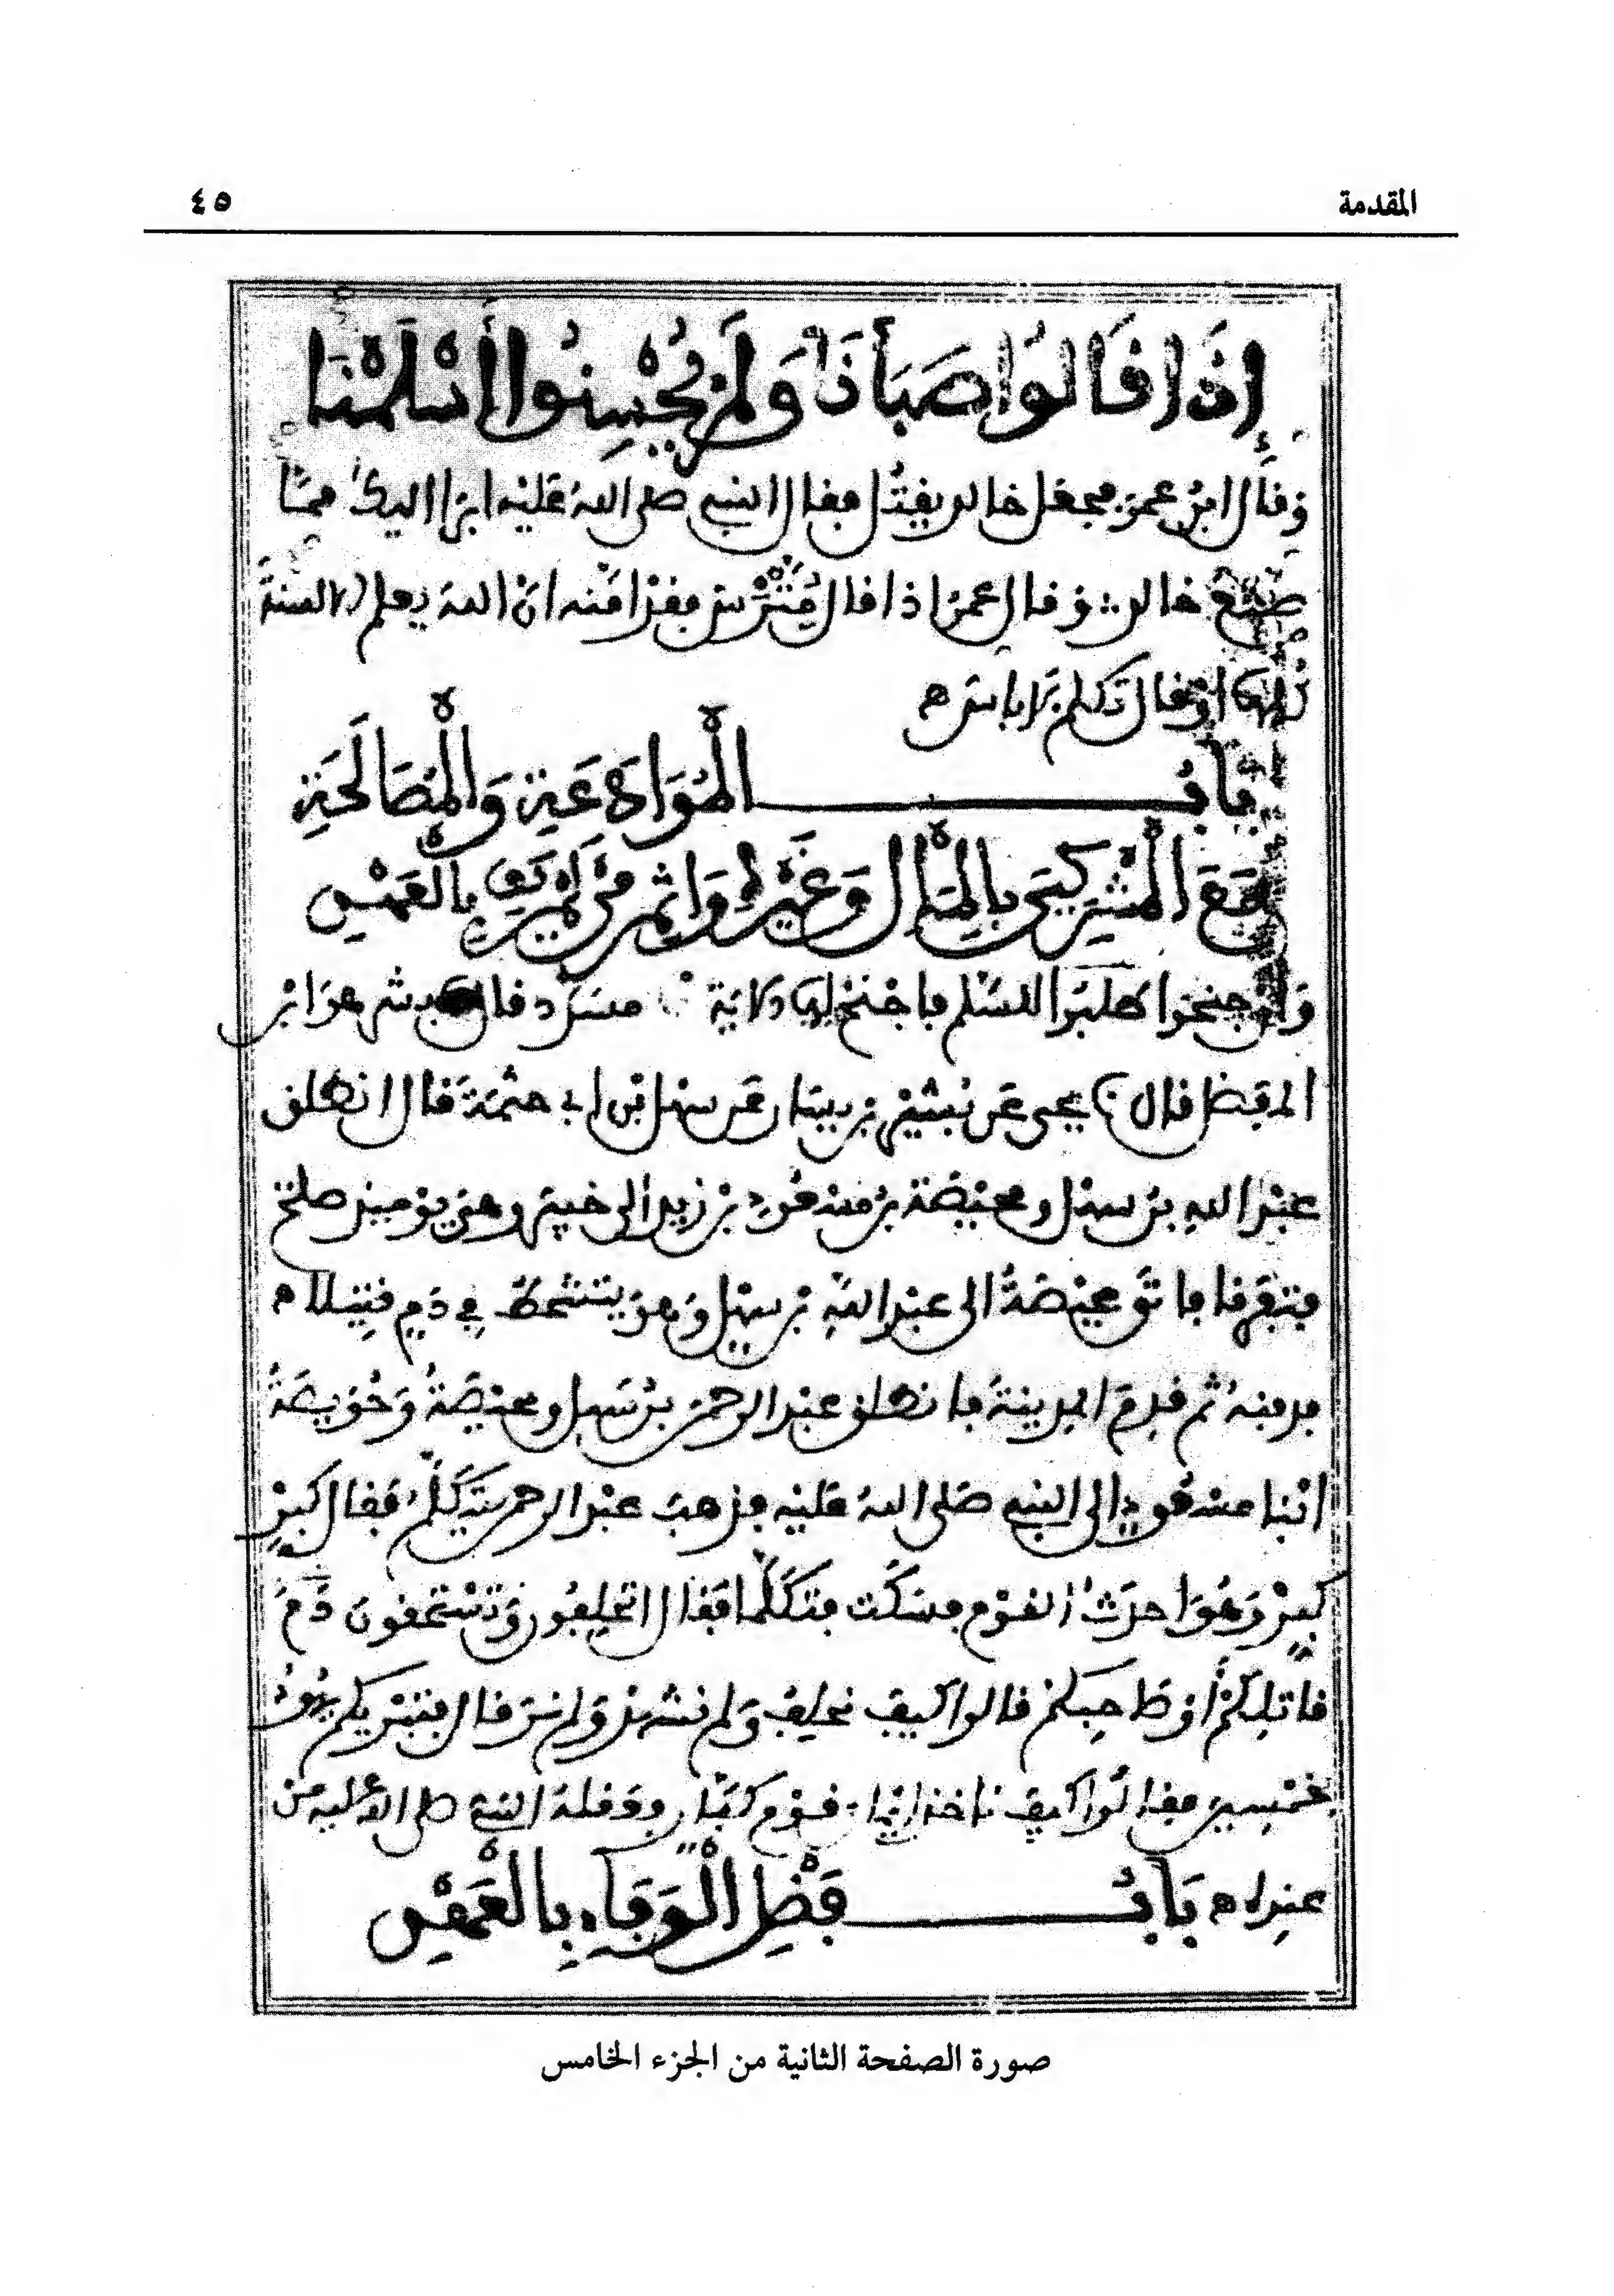 المقدمة
٤٥
إِذَا قَالُوا صَبَأْنَا وَلَمْ يُحْسِنُوا أَسْلَمْنَا
وَقَال ابنُ عمرَ فجعل خالد يقتُل فقال النبي صلى اللهُ عليْه ابرا اليك مما
صنع خالد وقال عمرُ اذا قال مَتَّرْسْ فقدْ امّنه انّ الله يعلم الالسنةَ
كلها اوْ قال تكلم لا باس ه
بَابُ الْمُوَادَعَةِ وَالْمُصَالَحَةِ
مَعَ الْمُشْرِكِينَ بِالْمَالِ وَغَيْرِهِ وَإِثْمِ مَنْ لَمْ يَفِ بِالْعَهْدِ
وَإن جنحوا طلبوا للسّلم فاجْنحْ لها الاية مسدّد قال بشر هو ابْن
المفضل قال يحيى عن بُشيْر بن يسار عن سهل بْن ابي حثمة قال انطلق
عبْد الله بنُ سهْل ومحيّصة بنُ مسعُودِ بْن زيد الى خيبر وهْي يوْمئذ صلح
فتفرقا فاتَى محيّصةُ الى عبْد اللّه بْن سهْل وَهو يتشحطُ في دَمِ قتِيلا ه
فدفنهُ ثم قدِمَ المدينةَ فانطلق عبْد الرحمن بنُ سَهل ومحيّصةُ وَحُوَيصةُ
ابْنا مسْعودٍ الى النبي صَلى اللهُ عليْه فذهبَ عبْد الرحمن يتَكلّمُ فقال كبرْ
كبرْ وَهُوَ احدَثُ القوْم فسَكَت فتكَلّما فقال اتحلِفُون وَتسْتحقون دَمَ
قاتلِكمْ أوْ صَاحِبكمْ قالوا كيف نحلِفُ وَلم نشْهدْ وَلم نرَ قال فتبْريكم يهُودُ
بخمْسين فقالُوا كيف ناخذ ايْمان قوْم كفّار فعقلهُ النبي صلى الله عليه من
عندِه ه بَابُ فَضْلِ الْوَفَاءِ بِالْعَهْدِ
صورة الصفحة الثانية من الجزء الخامس